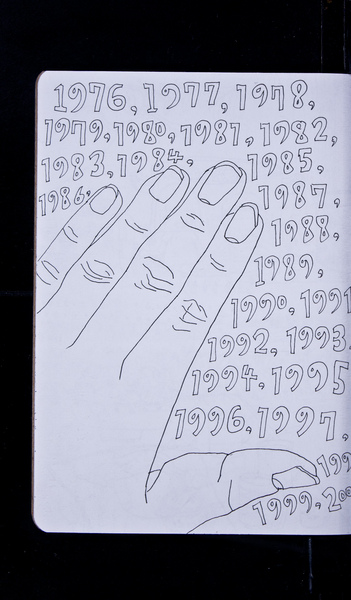 1976, 1977, 1978,
1979, 1980, 1981, 1982,
1983, 1984, 1985,
1986, 1987,
1988,
1989,
1990, 1991
1992, 1993
1994, 1995
1996, 1997,
1999,